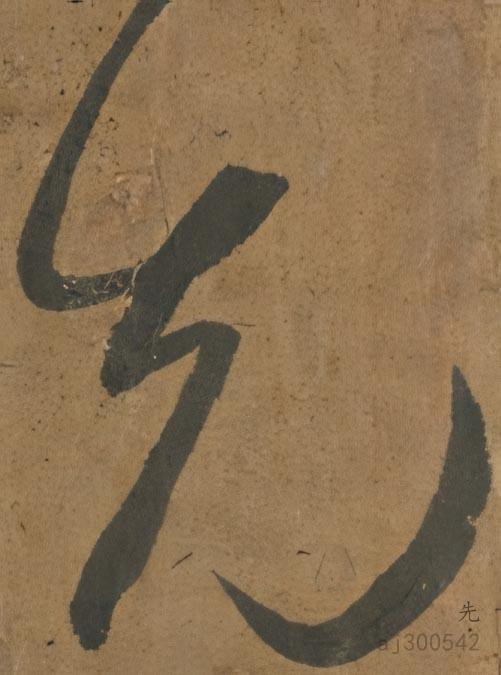 先
先
aj300542